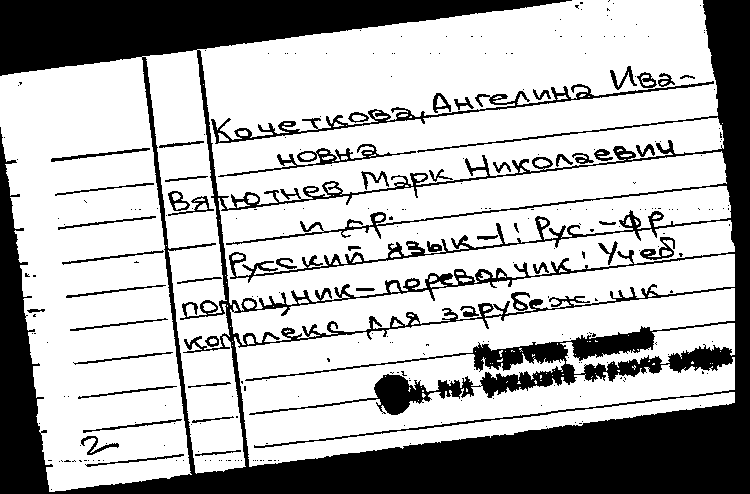 Кочеткова, Ангелина Ива-
новна
Вятютнев, Марк Николаевич
и др.
Русский язык-1: Рус.-фр.
помощник-переводчик: Учеб.
комплекс для зарубеж. шк.
под фамилией первого автора
2